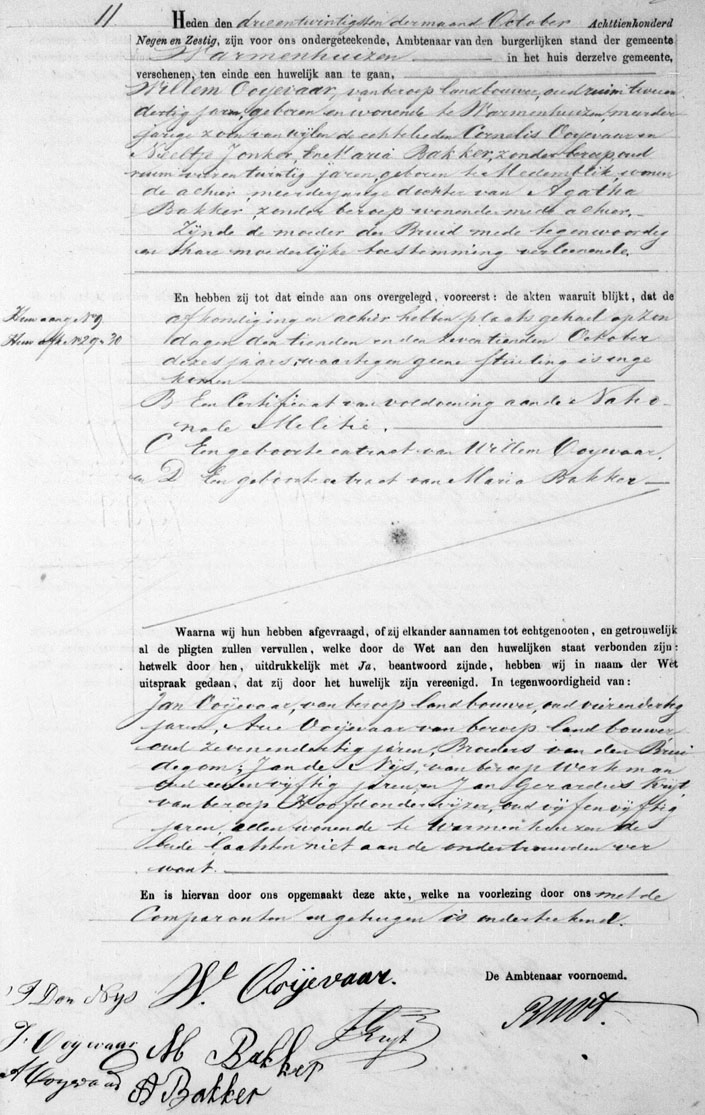 11.
Heden den drieentwintigsten der maand October Achttienhonderd
Negen en Zestig, zijn voor ons ondergeteekende, Ambtenaar van den burgerlijken stand der gemeente
Warmenhuizen in het huis derzelve gemeente,
verschenen, ten einde een huwelijk aan te gaan,
Willem Ooijevaar, van beroep landbouwer, oud ruim tweeen
dertig jaren, geboren en wonende te Warmenhuizen, meerder
jarige zoon van wijlen de echtelieden Cornelis Ooijevaar en
Neeltje Jonker, en Maria Bakker, zonder beroep, oud
ruim twintig jaren, geboren te Medemblik, wonen
de alhier, meerderjarige dochter van Agatha
Bakker, zonder beroep wonende mede alhier.
Zijnde de moeder der Bruid mede tegenwoordig
en hare moederlijke toestemming verleenende.
En hebben zij tot dat einde aan ons overgelegd, vooreerst: de akten waaruit blijkt, dat de
Huw aang N 9
afkondigingen alhier hebben plaats gehad op Zon
Huw afk N 29 30
dagen den tienden en den zeventienden October
dezes jaars, waartegen geene stuiting is inge
komen
B Een Certificaat van voldoening aan de Natio-
nale Militie.
C Een geboorte extract van Willem Ooyevaar.
en D Een geboorte extract van Maria Bakker
Waarna wij hun hebben afgevraagd, of zij elkander aannamen tot echtgenooten, en getrouwelijk
al de pligten zullen vervullen, welke door de Wet aan den huwelijken staat verbonden zijn:
hetwelk door hen, uitdrukkelijk met Ja, beantwoord zijnde, hebben wij in naam der Wet
uitspraak gedaan, dat zij door het huwelijk zijn vereenigd. In tegenwoordigheid van:
Jan Ooijevaar, van beroep landbouwer, oud vierendertig
jaren, Arie Ooijevaar van beroep landbouwer
oud zevenendertig jaren, Broeders van den Brui
degom; Jan de Nijs, van beroep werkman
oud vijftig jaren, en Jan Gerardus Kuijt,
van beroep Hoofdonderwijzer, oud vijfenvijftig
jaren, allen wonende te Warmenhuizen de
beide laatsten niet aan de ondertrouwden ver
want.
En is hiervan door ons opgemaakt deze akte, welke na voorlezing door ons met de
Comparanten en getuigen is onderteekend.
De Ambtenaar voornoemd.
J Den Nijs
Wm Ooijevaar.
J. Ooyevaar
M Bakker
Kuyt
A Ooyevaar
A Bakker